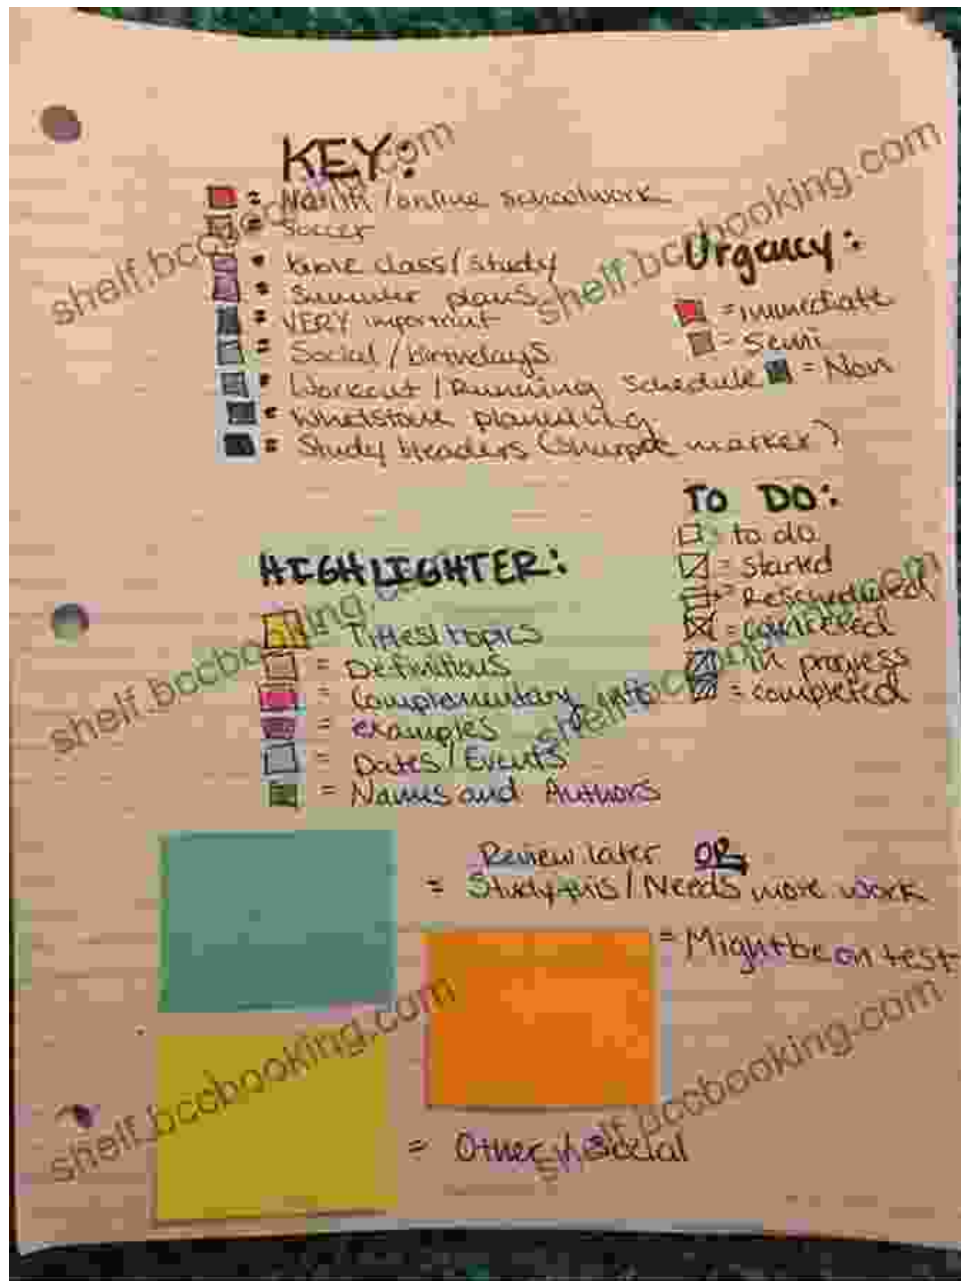 KEY:
= /online schoolwork
= Soccer
= class/study
= Summer plans
= VERY important
= Social/birthdays
= Workout/Running schedule
= planning
= Study Headers (sharpie marker)
Urgency:
= immediate
= Semi
= Non
TO DO:
= to do
= started
= Rescheduled
= canceled
= in progress
= completed
HIGHLIGHTER:
= Titles/topics
= Definitions
= Complementary info
= examples
= Dates/Events
= Names and Authors
Review later OR
= Study this/Needs more work
= Might be on test
= Other social
shelf.bccbooking.com
shelf.bccbooking.com
shelf.bccbooking.com
shelf.bccbooking.com
shelf.bccbooking.com
shelf.bccbooking.com